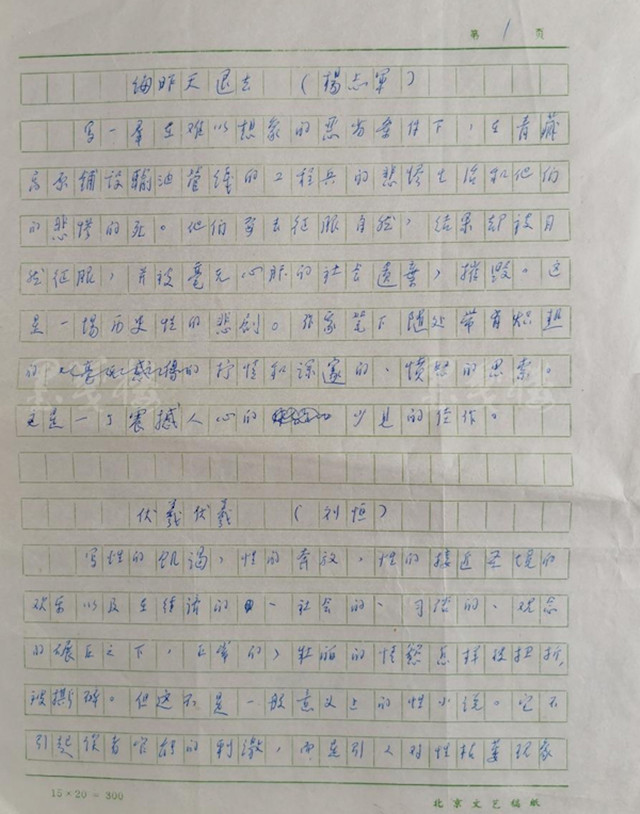 第 1 页
海昨天退去 (杨志军)
写一群在难以想象的恶劣条件下,在青藏
高原铺设输油管线的工程兵的悲惨生活和他们
的悲惨的死。他们要去征服自然,结果却被自
然征服,并被毫无心肝的社会遗弃,摧毁。这
是一场历史性的悲剧。作家笔下随处带有
的、感伤的抒情和深邃的、愤怒的思索。
这是一了震撼人心的 少见的佳作。
伏羲伏羲 (刘恒)
写性的饥渴,性的奔放,性的接近圣境的
欢乐以及在经济的、社会的、习俗的、观念
的碾压之下,正常的,壮丽的情欲怎样被扭折,
被撕碎。但这不是一般意义上的性小说。它不
引起读者官能的刺激,而是引人对性枯萎现象
15×20=300
北京文艺稿纸